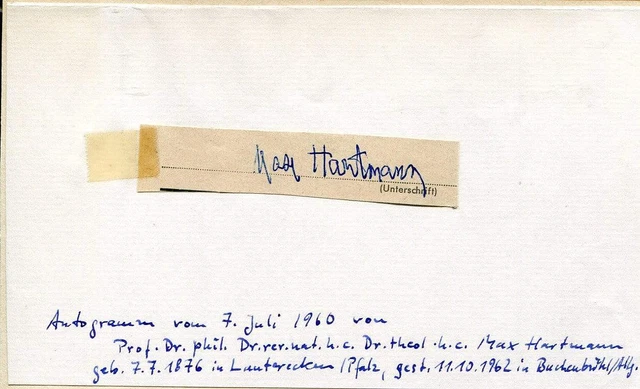 Max Hartmann
(Unterschrift)
Autogramm vom 7. Juli 1960 von
Prof. Dr. phil. Dr. rer. nat. h. c. Dr. theol. h. c. Max Hartmann
geb. 7.7.1876 in Lauterecken/Pfalz, gest. 11.10.1962 in Buchenbühl/Allg.